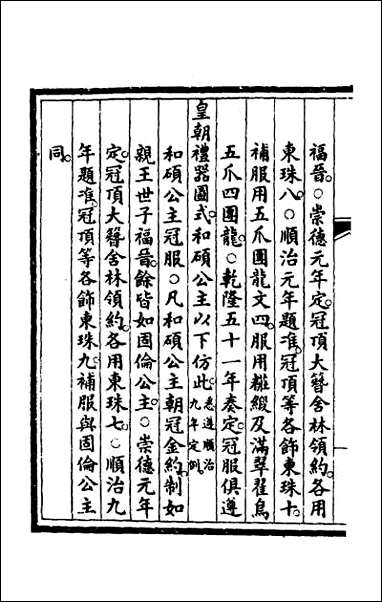 福晉○崇德元年定冠頂大簪舍林領約各用
東珠八○順治元年題准冠頂等各飾東珠十
補服用五爪團龍文四服用粧緞及滿翠翟鳥
五爪四團龍○乾隆五十一年奏定冠服俱遵
皇朝禮器圖式和碩公主以下仿此悉遵順治九年定例
和碩公主冠服○凡和碩公主朝冠金約制如
親王世子福晉餘皆如固倫公主○崇德元年
定冠頂大簪舍林領約各用東珠七○順治九
年題准冠頂等各飾東珠九補服與固倫公主
同